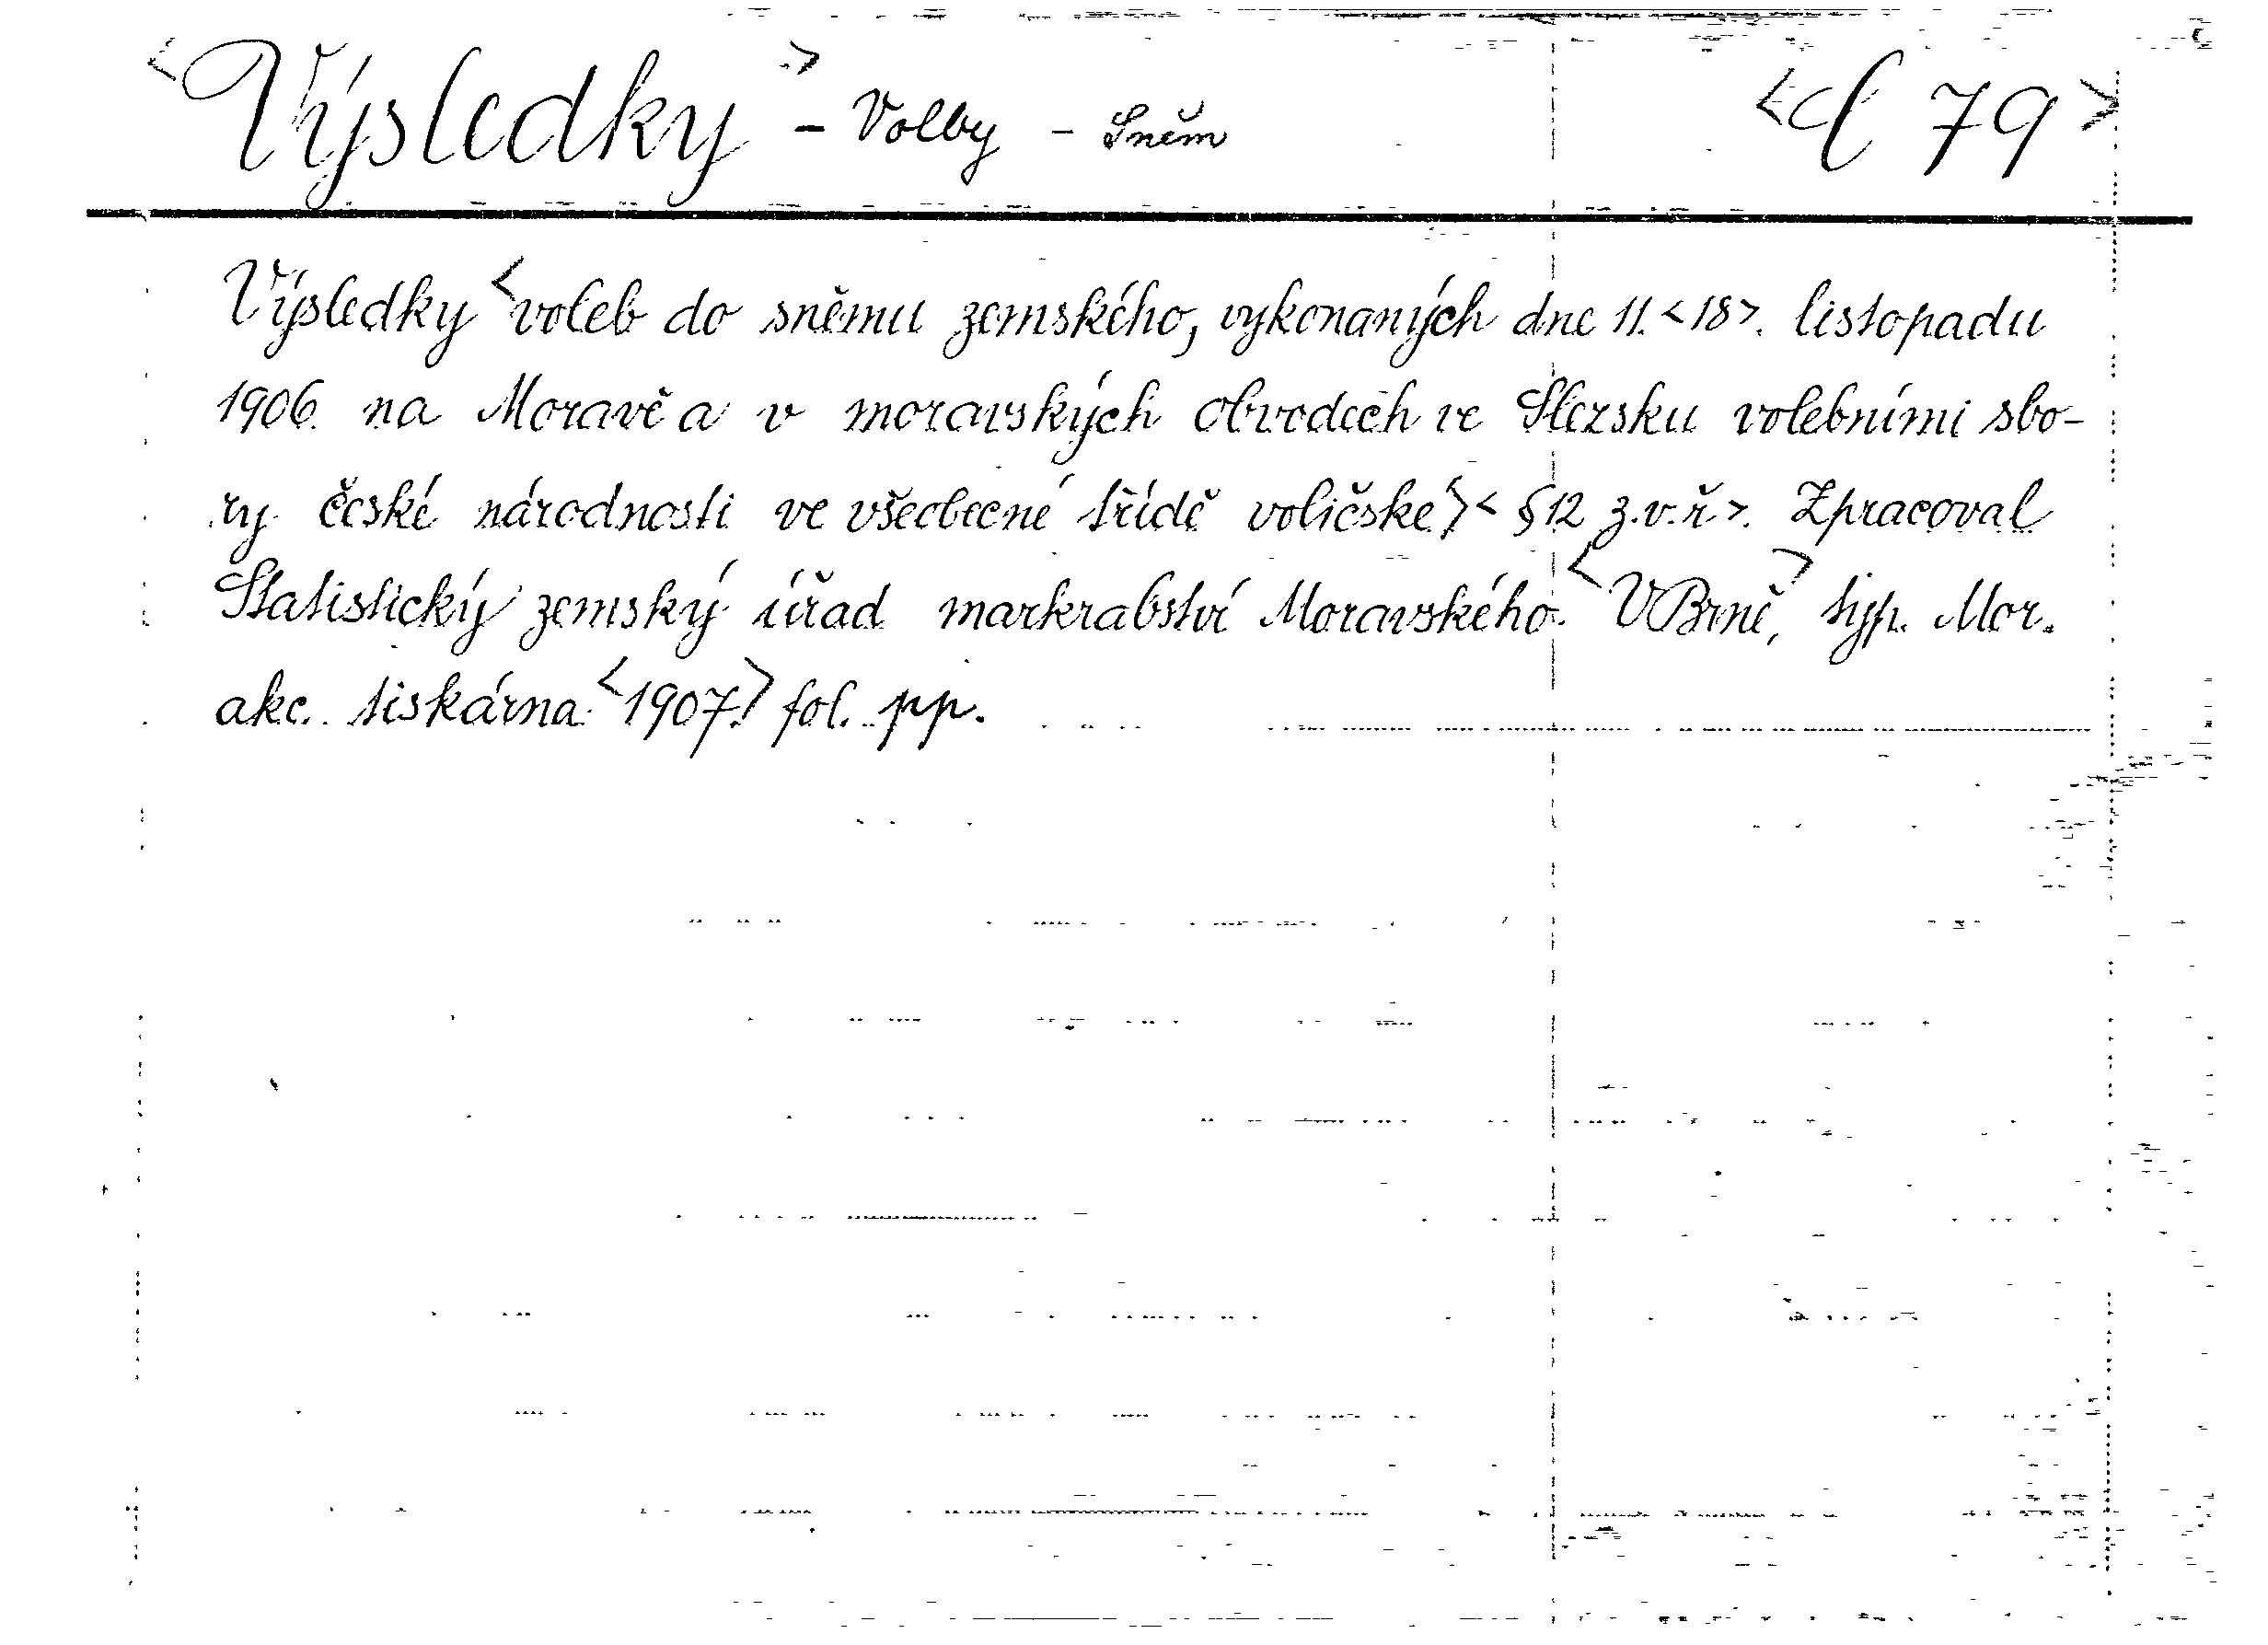 <Výsledky> - Volby - Sněm <C 79>
Výsledky <voleb do sněmu zemského, vykonaných dne 11. <18>. listopadu
1906 na Moravě a v moravských obvodech ve Slezsku volebními sbo-
ry české národnosti ve všeobecné třídě voličské> <§ 12 z.v.ř>. Zpracoval
Statistický zemský úřad markrabství Moravského. <V Brně,> typ. Mor.
akc. tiskárna <1907.> fol. pp.